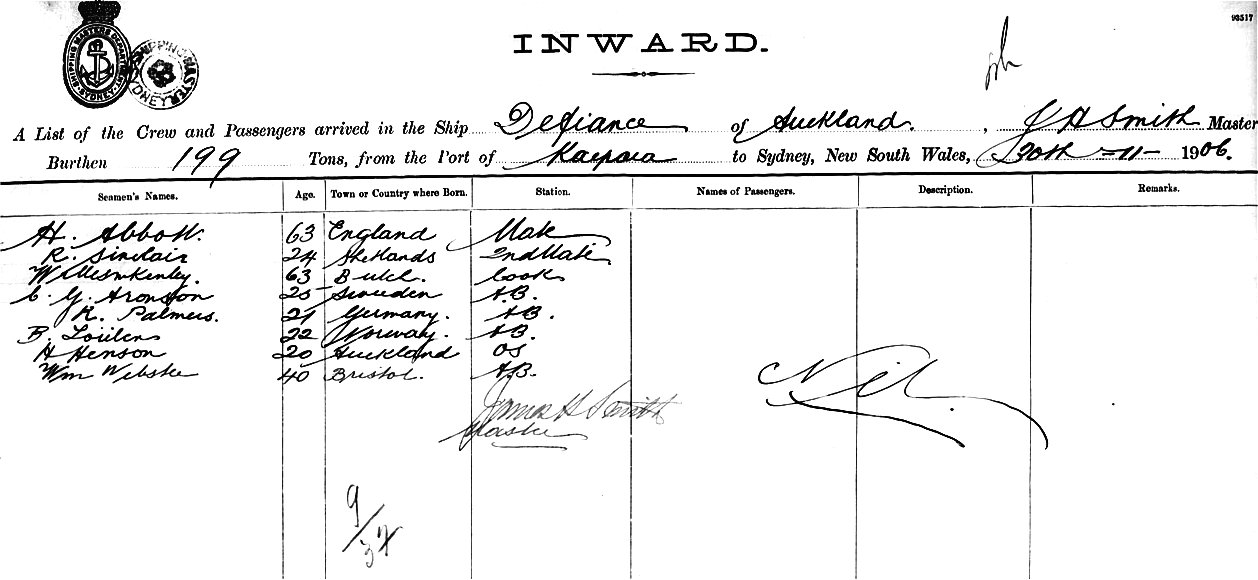 93517
SHIPPING MASTERS DEPARTMENT SYDNEY
SHIPPING MASTER SYDNEY
INWARD.
A List of the Crew and Passengers arrived in the Ship Defiance of Auckland. , J H Smith Master
Burthen 199 Tons, from the Port of Kaipara to Sydney, New South Wales, 20th -11- 1906.
Seamen's Names. Age. Town or Country where Born. Station. Names of Passengers. Description. Remarks.
H. Abbott. 63 England Mate
R. Sinclair 24 Shetlands 2nd Mate
63 Cook
C. G. Aronson 25 Sweden A.B.
K. Palmers. 21 Germany. A.B.
B. 22 Norway. A.B.
H Henson 20 Auckland OS
Wm Webster 40 Bristol. A.B.
Nil.
James H Smith
Master
9/37